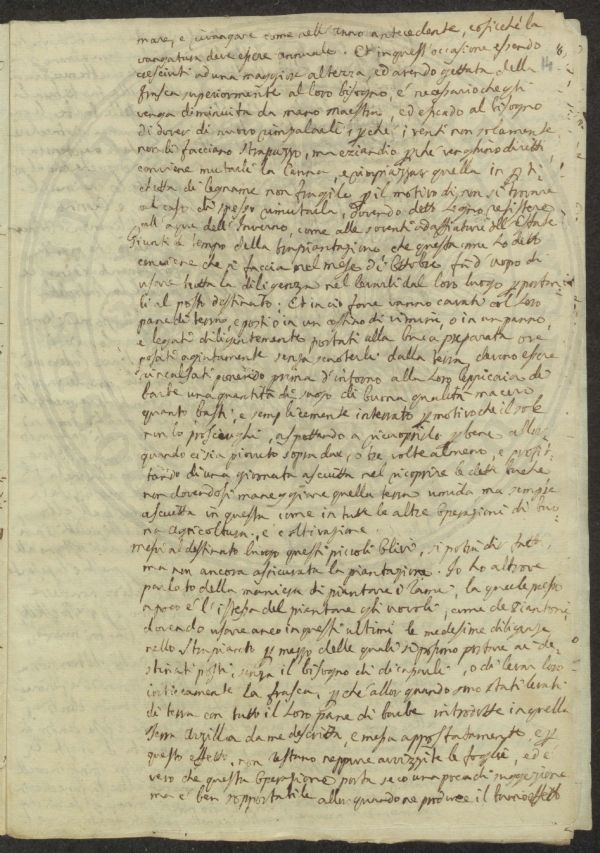 mare, e vangare come nell'anno antecedente, cosicchè la
vangatura deve essere annuale. Et in quest'occasione essendo
cresciuti ad una maggiore altezza, ed avendo gettata della
frasca superiormente al loro bisogno, è necessario che gli
venga diminuita da mano maestra, ed essendo al bisogno
di dover di nuovo i venti non solamente
non li facciano strapazzo, ma eziandio pchè venghino diritti
conviene mutarli la canna, e rimpiazzar quella in
di legname non fragile p il motivo di non si trovare
al caso di spesso rimutarla, dovendo detto Legno resistere
all'aque dell'Inverno, come alle soventi dell'Estate
Giunti a tempo della trapiantazione che questa come ho detto
conviene che si faccia nel mese di Ottobre, fa d'uopo di
usare tutta la diligenza nel levarli dal loro luogo p portar-
li al posto destinato; Et in ciò fare vanno cavati col loro
pane di terra, e posti o in un cestino di vimini, o in un panno,
e legati diligentemente portati alla buca preparata ove
posati agiatamente senza scuoterli dalla terra devono essere
rincalsati ponendo prima d'intorno alla loro di
barbe una quantità di sugo di buona qualità macero
quanto basti, e semplicemente interrato p motivo che il sole
non lo prosciughi, aspettando a ricuoprirlo p bene allor-
quando ci sia piovuto sopra due, o tre volte almeno, e profit-
tando di una giornata asciutta nel ricoprire le dette buche
non dovendosi maneggiare quella terra umida ma sempre
asciutta in questa come in tutte le altre Operazioni di buo-
na agricoltura, e coltivazione.
Messi a destinato luogo questi piccoli Ulivi, si potrà dir fatta,
ma non ancora assicurata la piantazione. Io ho altrove
parlato della maniera di piantare i Rami, la quale presso
a poco è l'istessa del piantare gli uovoli, come de Piantoni,
dovendo usare anco in questi ultimi le medesime diligenze
nello strapiantarli p mezzo delle quali si possono portare ai de-
stinati posti, senza il bisogno di o di levar loro
interamente la frasca, pchè allor quando sono stati levati
di terra con tutto il loro pane di barbe introdotte in quella
Terra Argilla da me descritta, e messa appostatamente, e p
questo effetto, non restano neppure avvizzite le foglie, ed è
vero che questa Operazione porta seco una poca di suggezione
ma è ben sopportabile allor quando ne produce il buon effetto